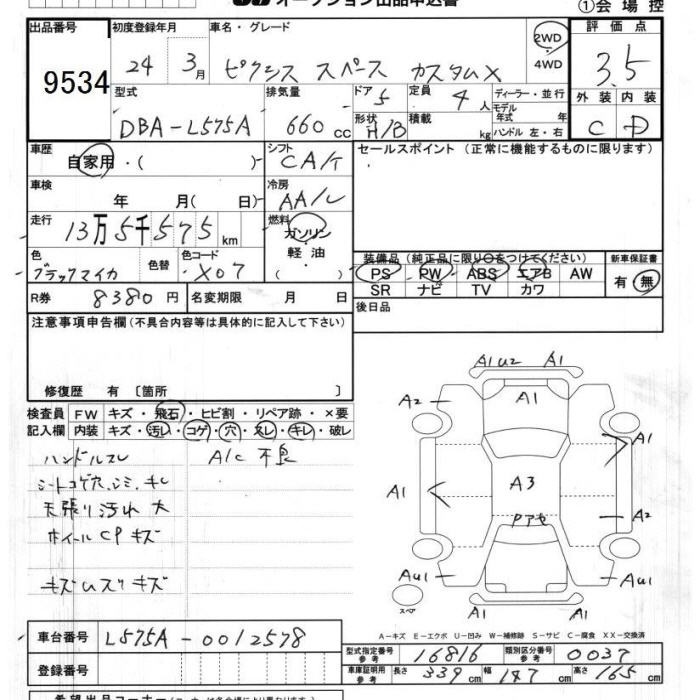 オークション出品申込書
①会場控
出品番号
9534
初度登録年月
24年 3月
車名・グレード
ピクシス スペース カスタムX
2WD
4WD
評価点
3.5
外装 内装
C D
型式
DBA-L575A
排気量
660cc
ドア
5
形状
H/B
定員
4人
積載
kg
ディーラー・並行
モデル年式 年
ハンドル 左・右
車歴
自家用・( )
シフト
CA/T
セールスポイント (正常に機能するものに限ります)
車検
年 月( 日)
冷房
AA/C
走行
13万5千575km
燃料
ガソリン
軽油
( )
色
ブラックマイカ
色替
色コード
X07
装備品 (純正品に限り○をつけてください)
PS PW ABS エアB AW
SR ナビ TV カワ
新車保証書
有・無
R券 8380円
名変期限 月 日
後日品
注意事項申告欄(不具合内容等は具体的に記入して下さい)
修復歴 有 〔箇所 〕
検査員 FW キズ・飛石・ヒビ割・リペア跡・×要
記入欄 内装 キズ・汚レ・コゲ・穴・スレ・キレ・破レ
ハンドルスレ A/C 不良
シートコゲ穴、シミ、キレ
天張り汚れ 大
ホイールCPキズ
A1U2 A1
A2 A1
A1
A1 A3
A2
Pアセ
AU1 AU1
スペア
A1 A1
A-キズ E-エクボ U-凹み W-補修跡 S-サビ C-腐食 XX-交換済
車台番号 L575A-0012578
登録番号
型式指定番号 参考 16816 類別区分番号 参考 0037
車庫証明用 参考 長さ 339cm 幅 147cm 高さ 165cm